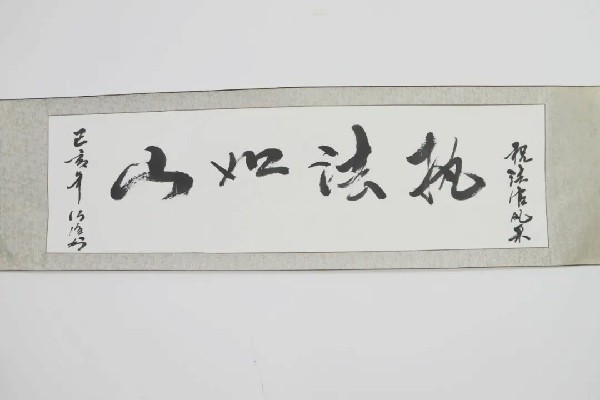 祝法治风采
执法如山
己亥年